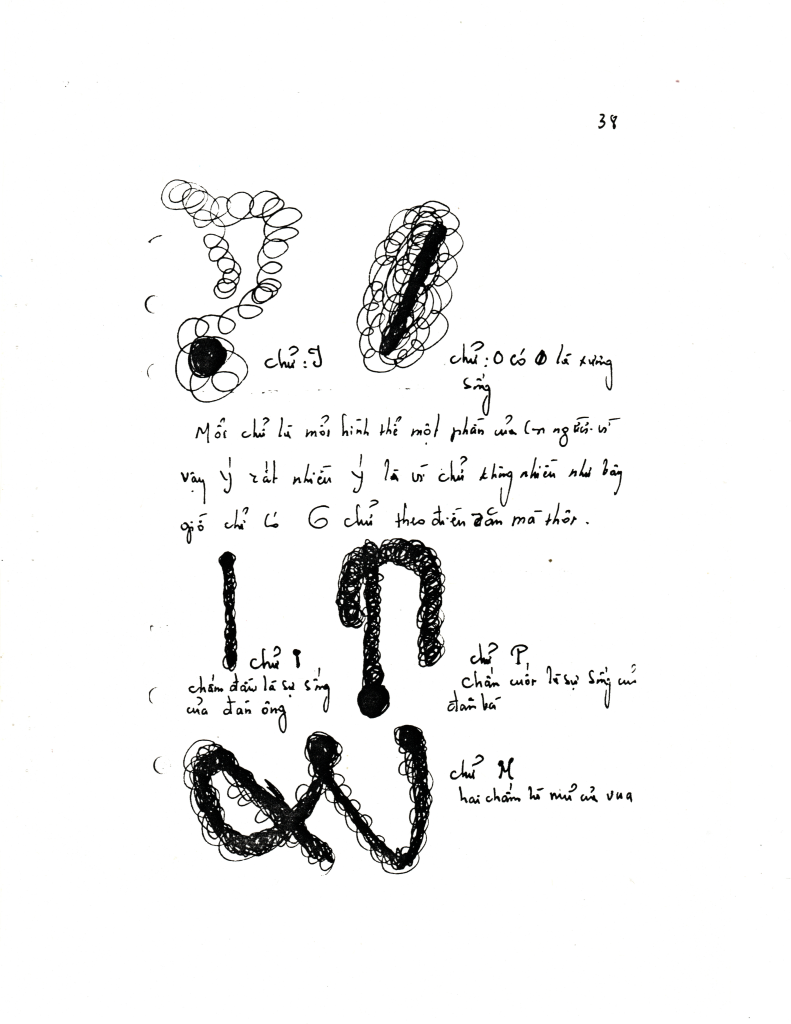 38
chử : J
chử : O có O là xương
sống
Mổi chử là mổi hình thể một phần của con người vì
vậy Ý rất nhiều Ý là vì chử không nhiều như bây
giờ chỉ có 6 chử theo điển đản mà thôi.
chử I
chấm đầu là sự sống
của đàn ông
chử P,
chấn cuối là sự sống củ
đàn bà
chử M
hai chấm là mủ của vua